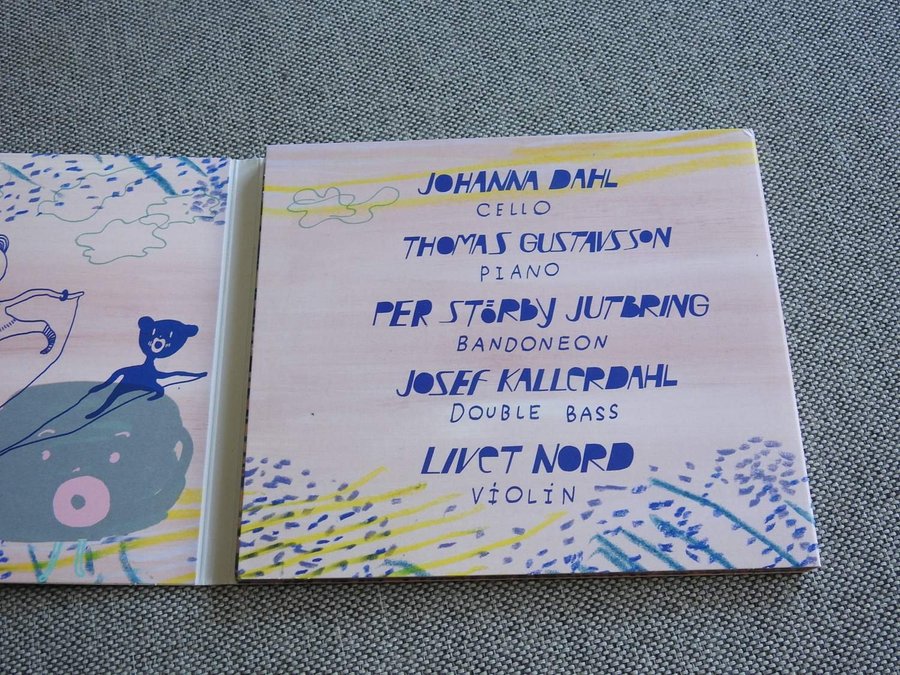 JOHANNA DAHL
CELLO
THOMAS GUSTAVSSON
PIANO
PER STÖRBY JUTBRING
BANDONEON
JOSEF KALLERDAHL
DOUBLE BASS
LIVET NORD
VIOLIN